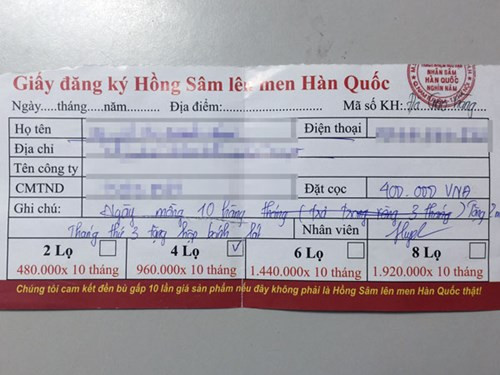 Giấy đăng ký Hồng Sâm lên men Hàn Quốc
NHÂN SÂM
HÀN QUỐC
NGHÌN NĂM
Ngày.....tháng.....năm.......... Địa điểm:.......................... Mã số KH:
Họ tên
Điện thoại
Địa chỉ
Tên công ty
CMTND
Đặt cọc 400.000 VNĐ
Ghi chú: Ngày mồng 10 hàng tháng ( trả trong vòng 3 tháng) tặng
Tháng thứ 3 tặng hộp bánh
Nhân viên
2 Lọ
4 Lọ
6 Lọ
8 Lọ
480.000x 10 tháng
960.000x 10 tháng
1.440.000x 10 tháng
1.920.000x 10 tháng
Chúng tôi cam kết đền bù gấp 10 lần giá sản phẩm nếu đây không phải là Hồng Sâm lên men Hàn Quốc thật!